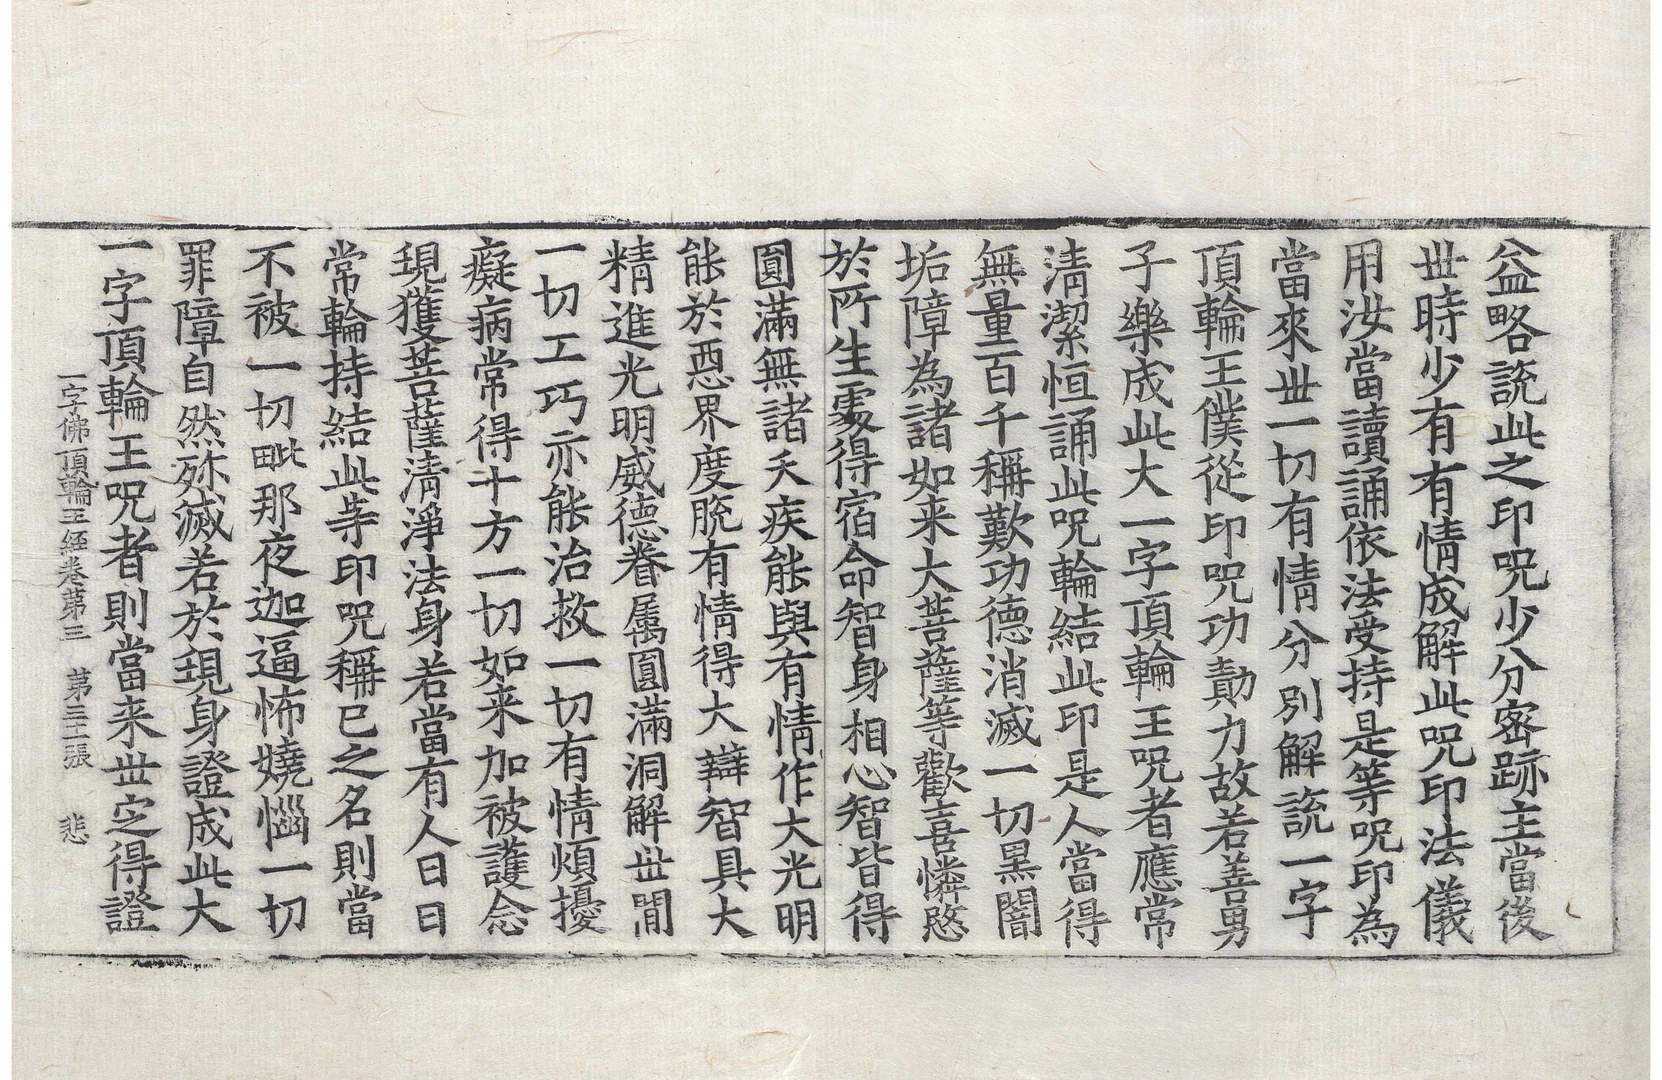 益略說此之印呪少分密跡主當後
世時少有有情成解此呪印法儀
用汝當讀誦依法受持是等呪印為
當來世一切有情分別解說一字
頂輪王僕從印呪功勣力故若善男
子樂成此大一字頂輪王呪者應常
淸潔恒誦此呪輪結此印是人當得
無量百千稱歎功德消滅一切黑闇
垢障為諸如来大菩薩等歡喜憐愍
於所生處得宿命智身相心智皆得
圓滿無諸夭疾能與有情作大光明
能於惡界度脫有情得大辯智具大
精進光明威德眷属圓滿洞解世間
一切工巧亦能治救一切有情煩擾
癡病常得十方一切如来加被護念
現獲菩薩淸淨法身若當有人日日
常輪持結此等印呪稱已之名則當
不被一切毗那夜迦逼怖嬈惱一切
罪障自然殄滅若於現身證成此大
一字頂輪王呪者則當来世定得證
一字佛頂輪王經卷第三　第三十張　悲